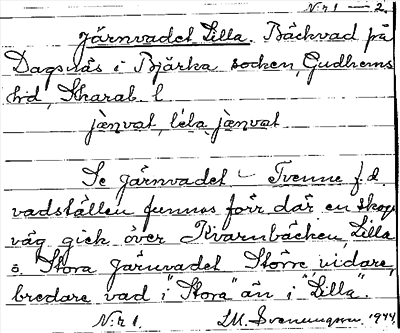 Nr 1 — 2.
Järnvadet Lilla. Bäckvad på
Dagsnäs i Bjärka socken, Gudhems
hd, Skarab. l
jä̀nvat, lela jä̀nvat
Se Järnvadet – Tvenne f. d.
vadställen funnos förr där en skogs
väg gick över Kvarnbäcken, Lilla
o. Stora Järnvadet Större vidare,
bredare vad i "Stora" än i "Lilla".
Nr 1. I.M. Svenungsson 1944